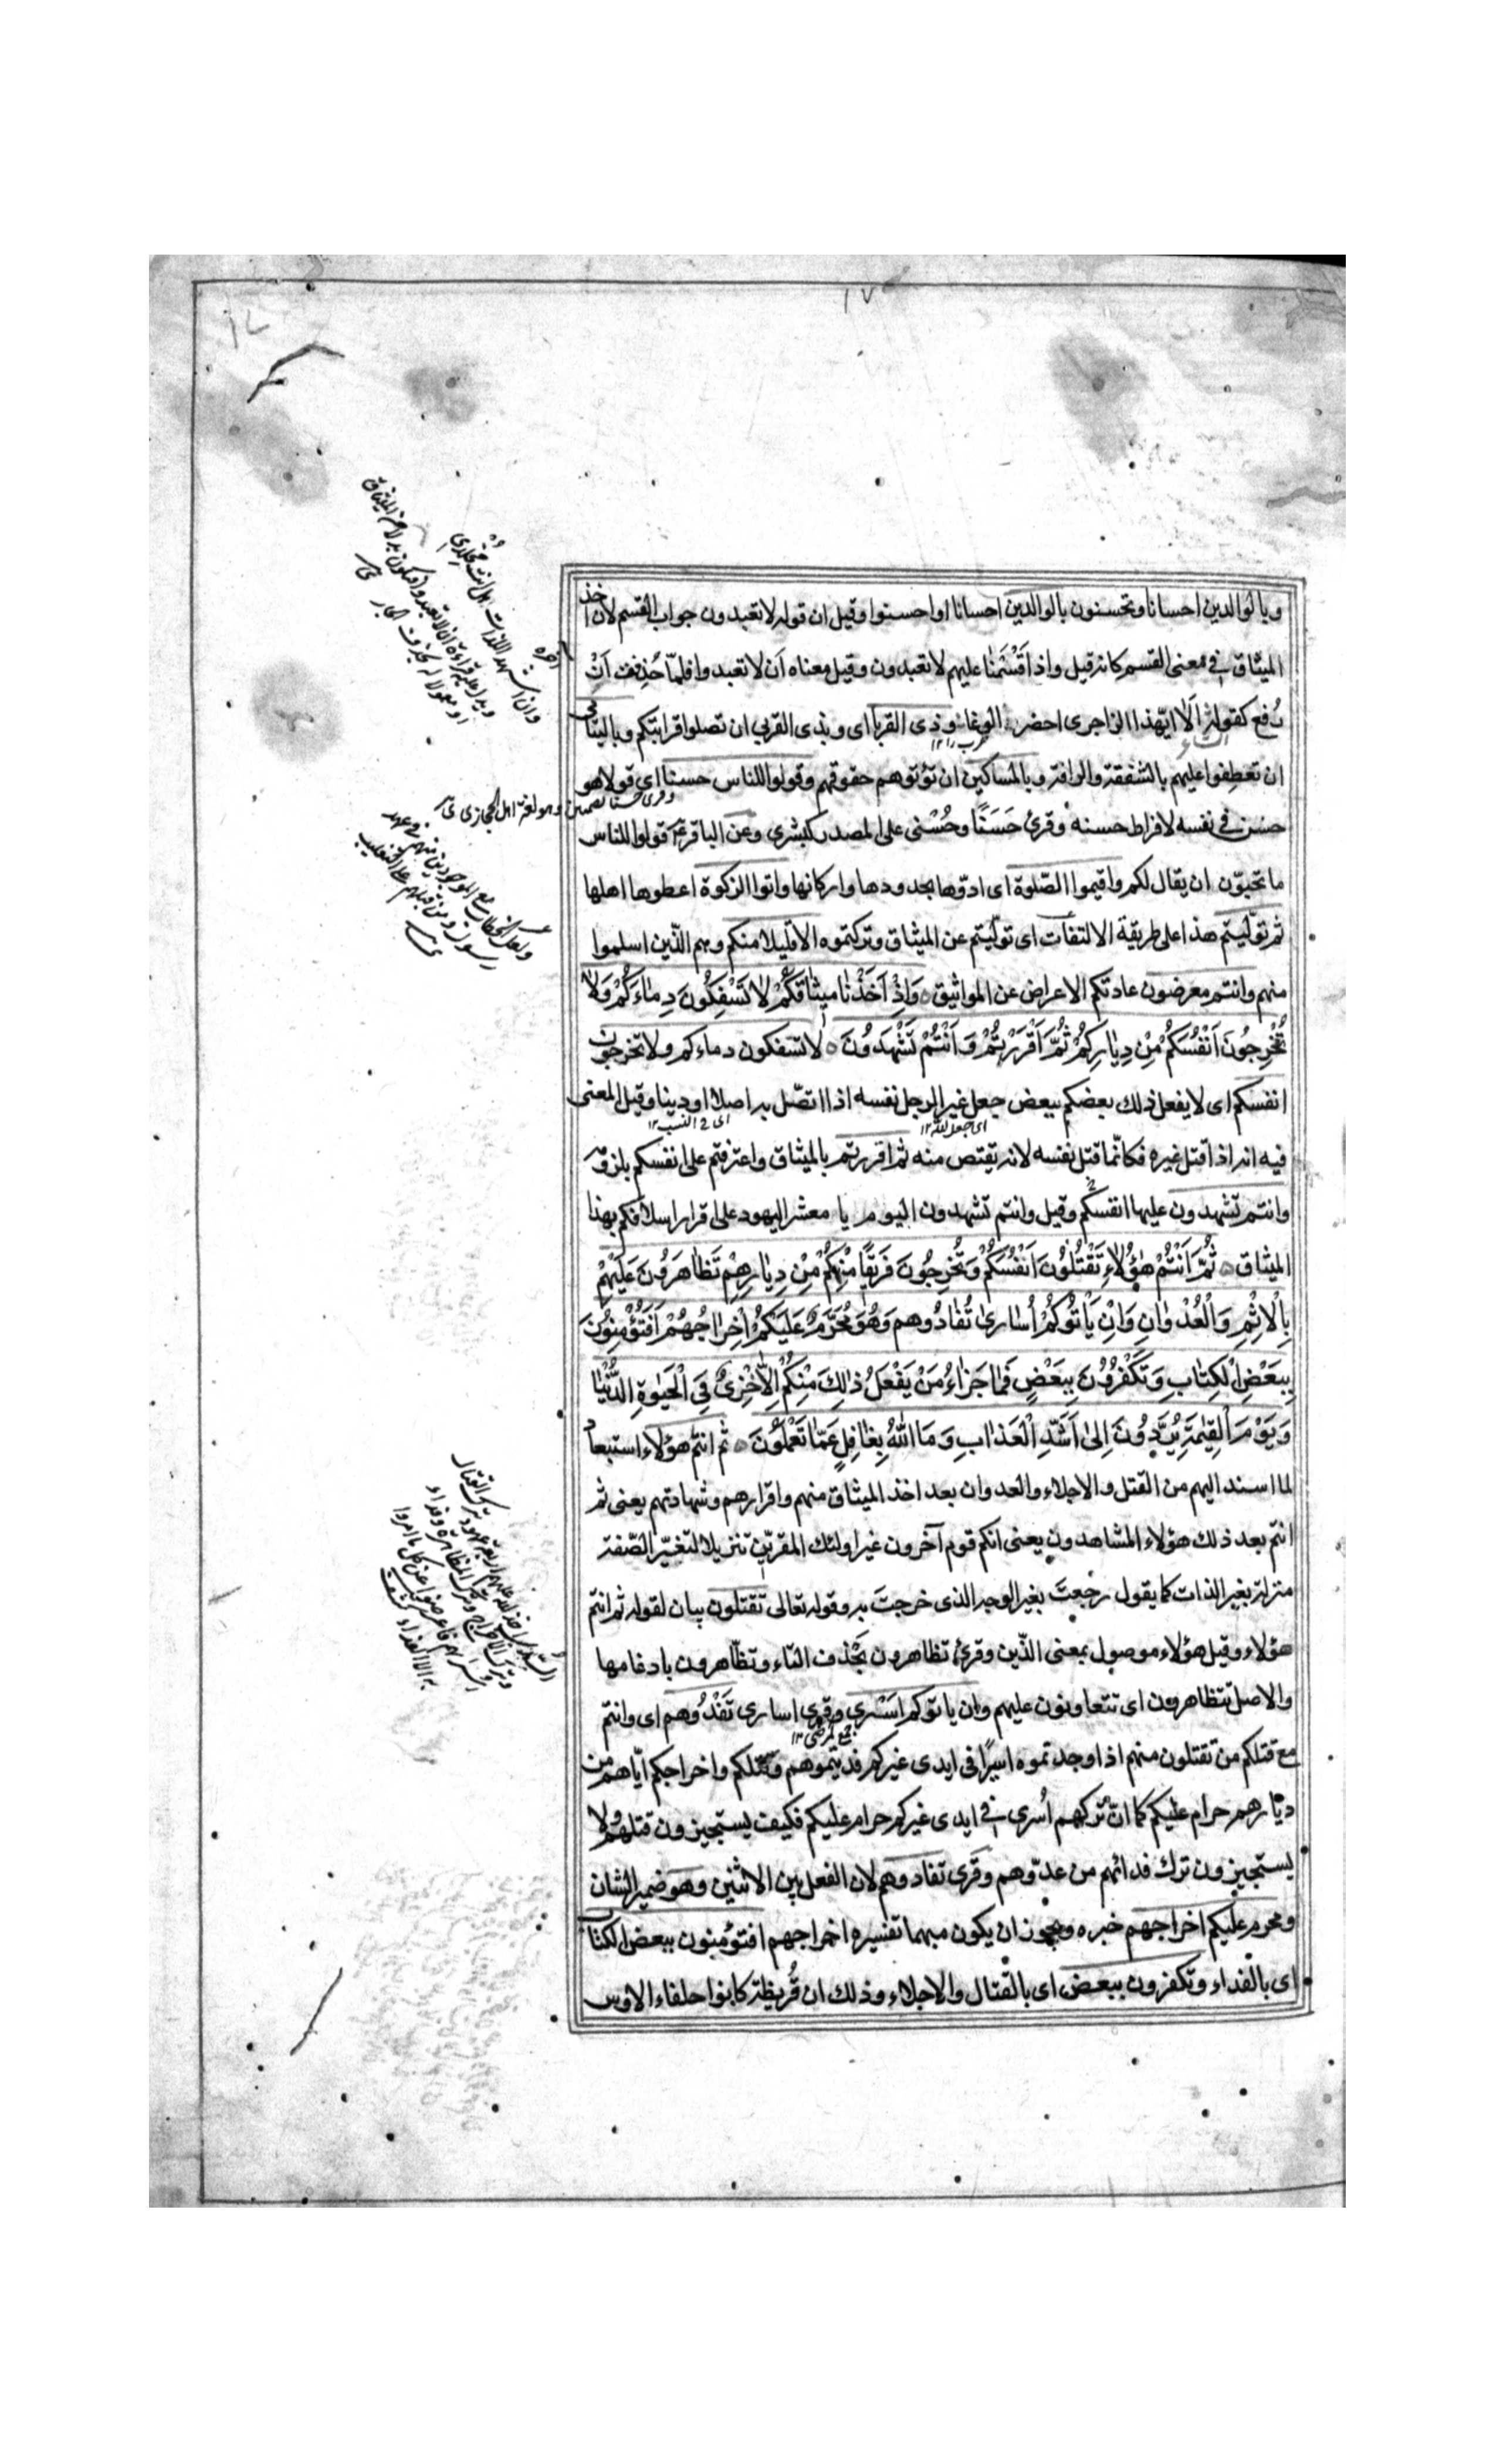 ١٧
وبالوالدين احسانا وتحسنون بالوالدين احسانا او احسنوا وقيل ان قوله لا تعبدون جواب القسم لان اخذ
الميثاق فى معنى القسم كانه قيل واذ اقسمنا عليهم لا تعبدون وقيل معناه ان لا تعبدوا فلما حذفت ان
رفع كقوله الا ايهذا الزاجرى احضر الوغا وذى القربا اى وبذى القربى ان تصلوا قرابتكم وباليتامى
ان تعطفوا عليهم بالشفقة والرافة وبالمساكين ان تؤتوهم حقوقهم وقولوا للناس حسنا اى قولا هو
حسن فى نفسه لافراط حسنه وقرئ حَسَنًا وحُسْنى على المصدر كبشرى وعن الباقر ع قولوا للناس
ما تحبون ان يقال لكم واقيموا الصلوة اى ادوها بحدودها واركانها واتوا الزكوة اعطوها اهلها
ثم توليتم هذا على طريقة الالتفات اى توليتم عن الميثاق وتركتموه الا قليلا منكم وهم الذين اسلموا
منهم وانتم معرضون عادتكم الاعراض عن المواثيق وَاِذْ اَخَذْنٰا ميثٰاقَكُمْ لاٰ تَسْفِكُونَ دِمٰاءَكُمْ وَلاٰ
تُخْرِجُونَ اَنْفُسَكُمْ مِنْ دِيٰارِكُمْ ثُمَّ اَقْرَرْتُمْ وَاَنْتُمْ تَشْهَدُونَ لا تسفكون دماءكم ولا تخرجون
انفسكم اى لا يفعل ذلك بعضكم ببعض جعل غير الرجل نفسه اذا اتصل به اصلا او دينا وقيل المعنى
فيه انه اذا قتل غيره فكانما قتل نفسه لانه يقتص منه ثم اقررتم بالميثاق واعترفتم على انفسكم بلزومه
وانتم تشهدون عليها انفسكم وقيل وانتم تشهدون اليوم يا معشر اليهود على اقرار اسلافكم بهذا
الميثاق ثُمَّ اَنْتُمْ هٰؤُلاٰءِ تَقْتُلُونَ اَنْفُسَكُمْ وَتُخْرِجُونَ فَريقًا مِنْكُمْ مِنْ دِيٰارِهِمْ تَظٰاهَرُونَ عَلَيْهِمْ
بِالْاِثْمِ وَالْعُدْوٰانِ وَاِنْ يَاْتُوكُمْ اُسٰارىٰ تُفٰادُوهم وَهُوَ مُحَرَّمٌ عَلَيْكُمْ اِخْرٰاجُهُمْ اَفَتُؤْمِنُونَ
بِبَعْضِ الْكِتٰابِ وَتَكْفُرُونَ بِبَعْضٍ فَمٰا جَزٰاءُ مَنْ يَفْعَلُ ذٰلِكَ مِنْكُمْ اِلاّٰ خِزْىٌ فِى الْحَيٰوةِ الدُّنْيٰا
وَيَوْمَ الْقِيٰمَةِ يُرَدُّونَ اِلىٰ اَشَدِّ الْعَذٰابِ وَمَا اللهُ بِغٰافِلٍ عَمّٰا تَعْمَلُونَ ثم انتم هؤلاء استبعاد
لما اسند اليهم من القتل والاجلاء والعدوان بعد اخذ الميثاق منهم واقرارهم وشهادتهم يعنى ثم
انتم بعد ذلك هؤلاء المشاهدون يعنى انكم قوم آخرون غير اولئك المقرين تنزيلا لتغير الصفة
منزلة بغير الذات كما يقول رجعت بغير الوجه الذى خرجت به وقوله تعالى تقتلون بيان لقوله ثم انتم
هؤلاء وقيل هؤلاء موصول بمعنى الذين وقرئ تظاهرون بحذف التاء وتظّاهرون بادغامها
والاصل تتظاهرون اى تتعاونون عليهم وان ياتوكم اسرى وقرى اسارى تفدوهم اى وانتم
مع قتلكم من تقتلون منهم اذا وجدتموه اسيرا فى ايدى غيركم فديتموهم وقتلكم واخراجكم اياهم من
ديارهم حرام عليكم كما ان تركهم اسرى فى ايدى غيركم حرام عليكم فكيف يستجيزون قتلهم ولا
يستجيزون ترك فدائهم من عدوهم وقرى تفادوهم لان الفعل بين الاثنين وهو ضمير الشان
ومحرم عليكم اخراجهم خبره ويجوز ان يكون مبهما تفسيره اخراجهم افتؤمنون ببعض الكتاب
اى بالفداء وتكفرون ببعض اى بالقتال والاجلاء وذلك ان قريظة كانوا حلفاء الاوس